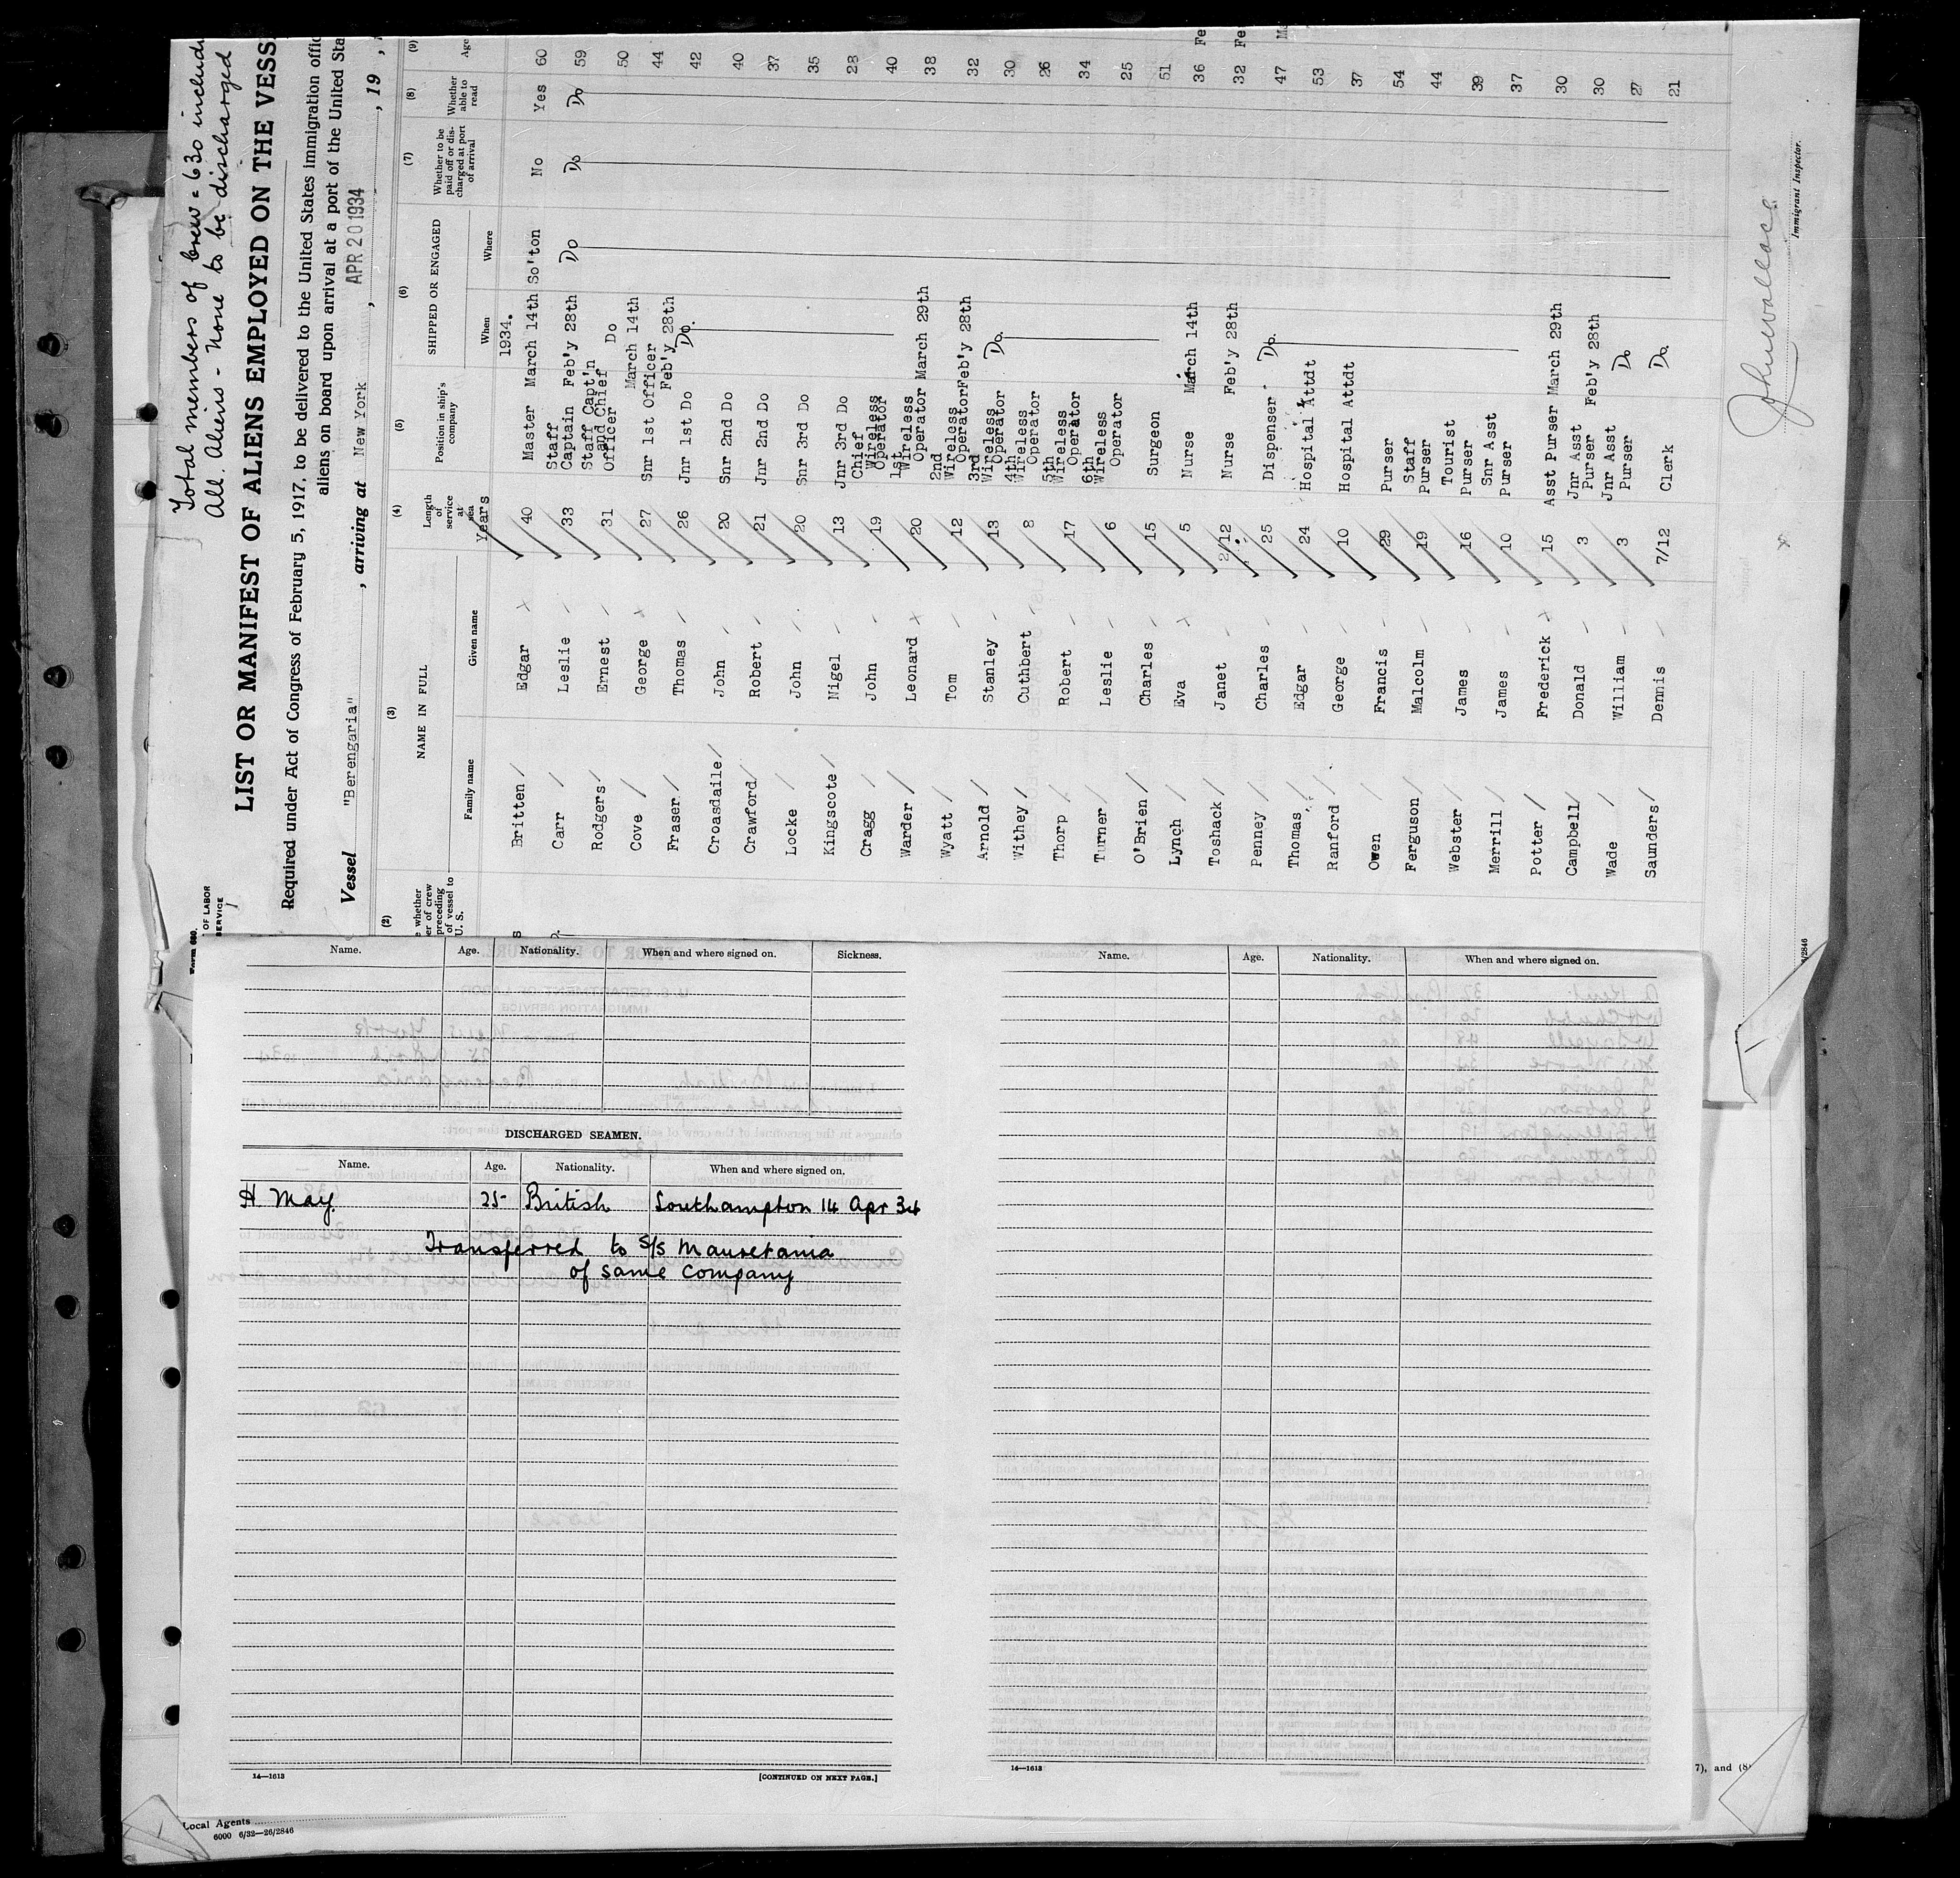 Total members of Crew = 630 includi
All Aliens - None to be discharged
LIST OR MANIFEST OF ALIENS EMPLOYED ON THE VESS
Required under Act of Congress of February 5, 1917, to be delivered to the United States immigration offic
aliens on board upon arrival at a port of the United Sta
Vessel "Berengaria", arriving at New York, APR 20 1934, 19
Form 680.
OF LABOR
SERVICE
(2) (3) (4) (5) (6) (7) (8) (9)
whether
er of crew
preceding
of vessel to
U. S.
NAME IN FULL
Family name Given name
Length of service at sea
Years
Position in ship's company
SHIPPED OR ENGAGED
When Where
Whether to be paid off or discharged at port of arrival
Whether able to read
Age
1934.
Britten Edgar 40 Master March 14th So'ton No Yes 60
Carr Leslie 33 Staff Captain Feb'y 28th Do Do Do 59
Rodgers Ernest 31 Staff Capt'n and Chief Officer Do 50
Cove George 27 Snr 1st Officer March 14th 44
Fraser Thomas 26 Jnr 1st Do Feb'y 28th 42
Croasdaile John 20 Snr 2nd Do Do. 40
Crawford Robert 21 Jnr 2nd Do 37
Locke John 20 Snr 3rd Do 35
Kingscote Nigel 13 Jnr 3rd Do 28
Cragg John 19 Chief Wireless Operator 40
Warder Leonard 20 1st Wireless Operator March 29th 38
Wyatt Tom 12 2nd Wireless Operator Feb'y 28th 32
Arnold Stanley 13 3rd Wireless Operator Do. 30
Withey Cuthbert 8 4th Wireless Operator 26
Thorp Robert 17 5th Wireless Operator 34
Turner Leslie 6 6th Wireless Operator 25
O'Brien Charles 15 Surgeon 51
Lynch Eva 5 Nurse March 14th 36 Fe
Toshack Janet 2/12 Nurse Feb'y 28th 32 Fe
Penney Charles 25 Dispenser Do. 47 M
Thomas Edgar 24 Hospital Attdt 53
Ranford George 10 Hospital Attdt 37
Owen Francis 29 Purser 54
Ferguson Malcolm 19 Staff Purser 44
Webster James 16 Tourist Purser 39
Merrill James 10 Snr Asst Purser 37
Potter Frederick 15 Asst Purser March 29th 30
Campbell Donald 3 Jnr Asst Purser Feb'y 28th 30
Wade William 3 Jnr Asst Purser Do 27
Saunders Dennis 7/12 Clerk Do. 21
John Wallace
Immigrant Inspector.
Name. Age. Nationality. When and where signed on. Sickness.
DISCHARGED SEAMEN.
Name. Age. Nationality. When and where signed on.
H May. 25 British Southampton 14 Apr 34
Transferred to S/S Mauretania
of same company
14—1613 [CONTINUED ON NEXT PAGE.]
Name. Age. Nationality. When and where signed on.
14—1613
7), and (8)
/2846
Local Agents
6000 6/32—26/2846